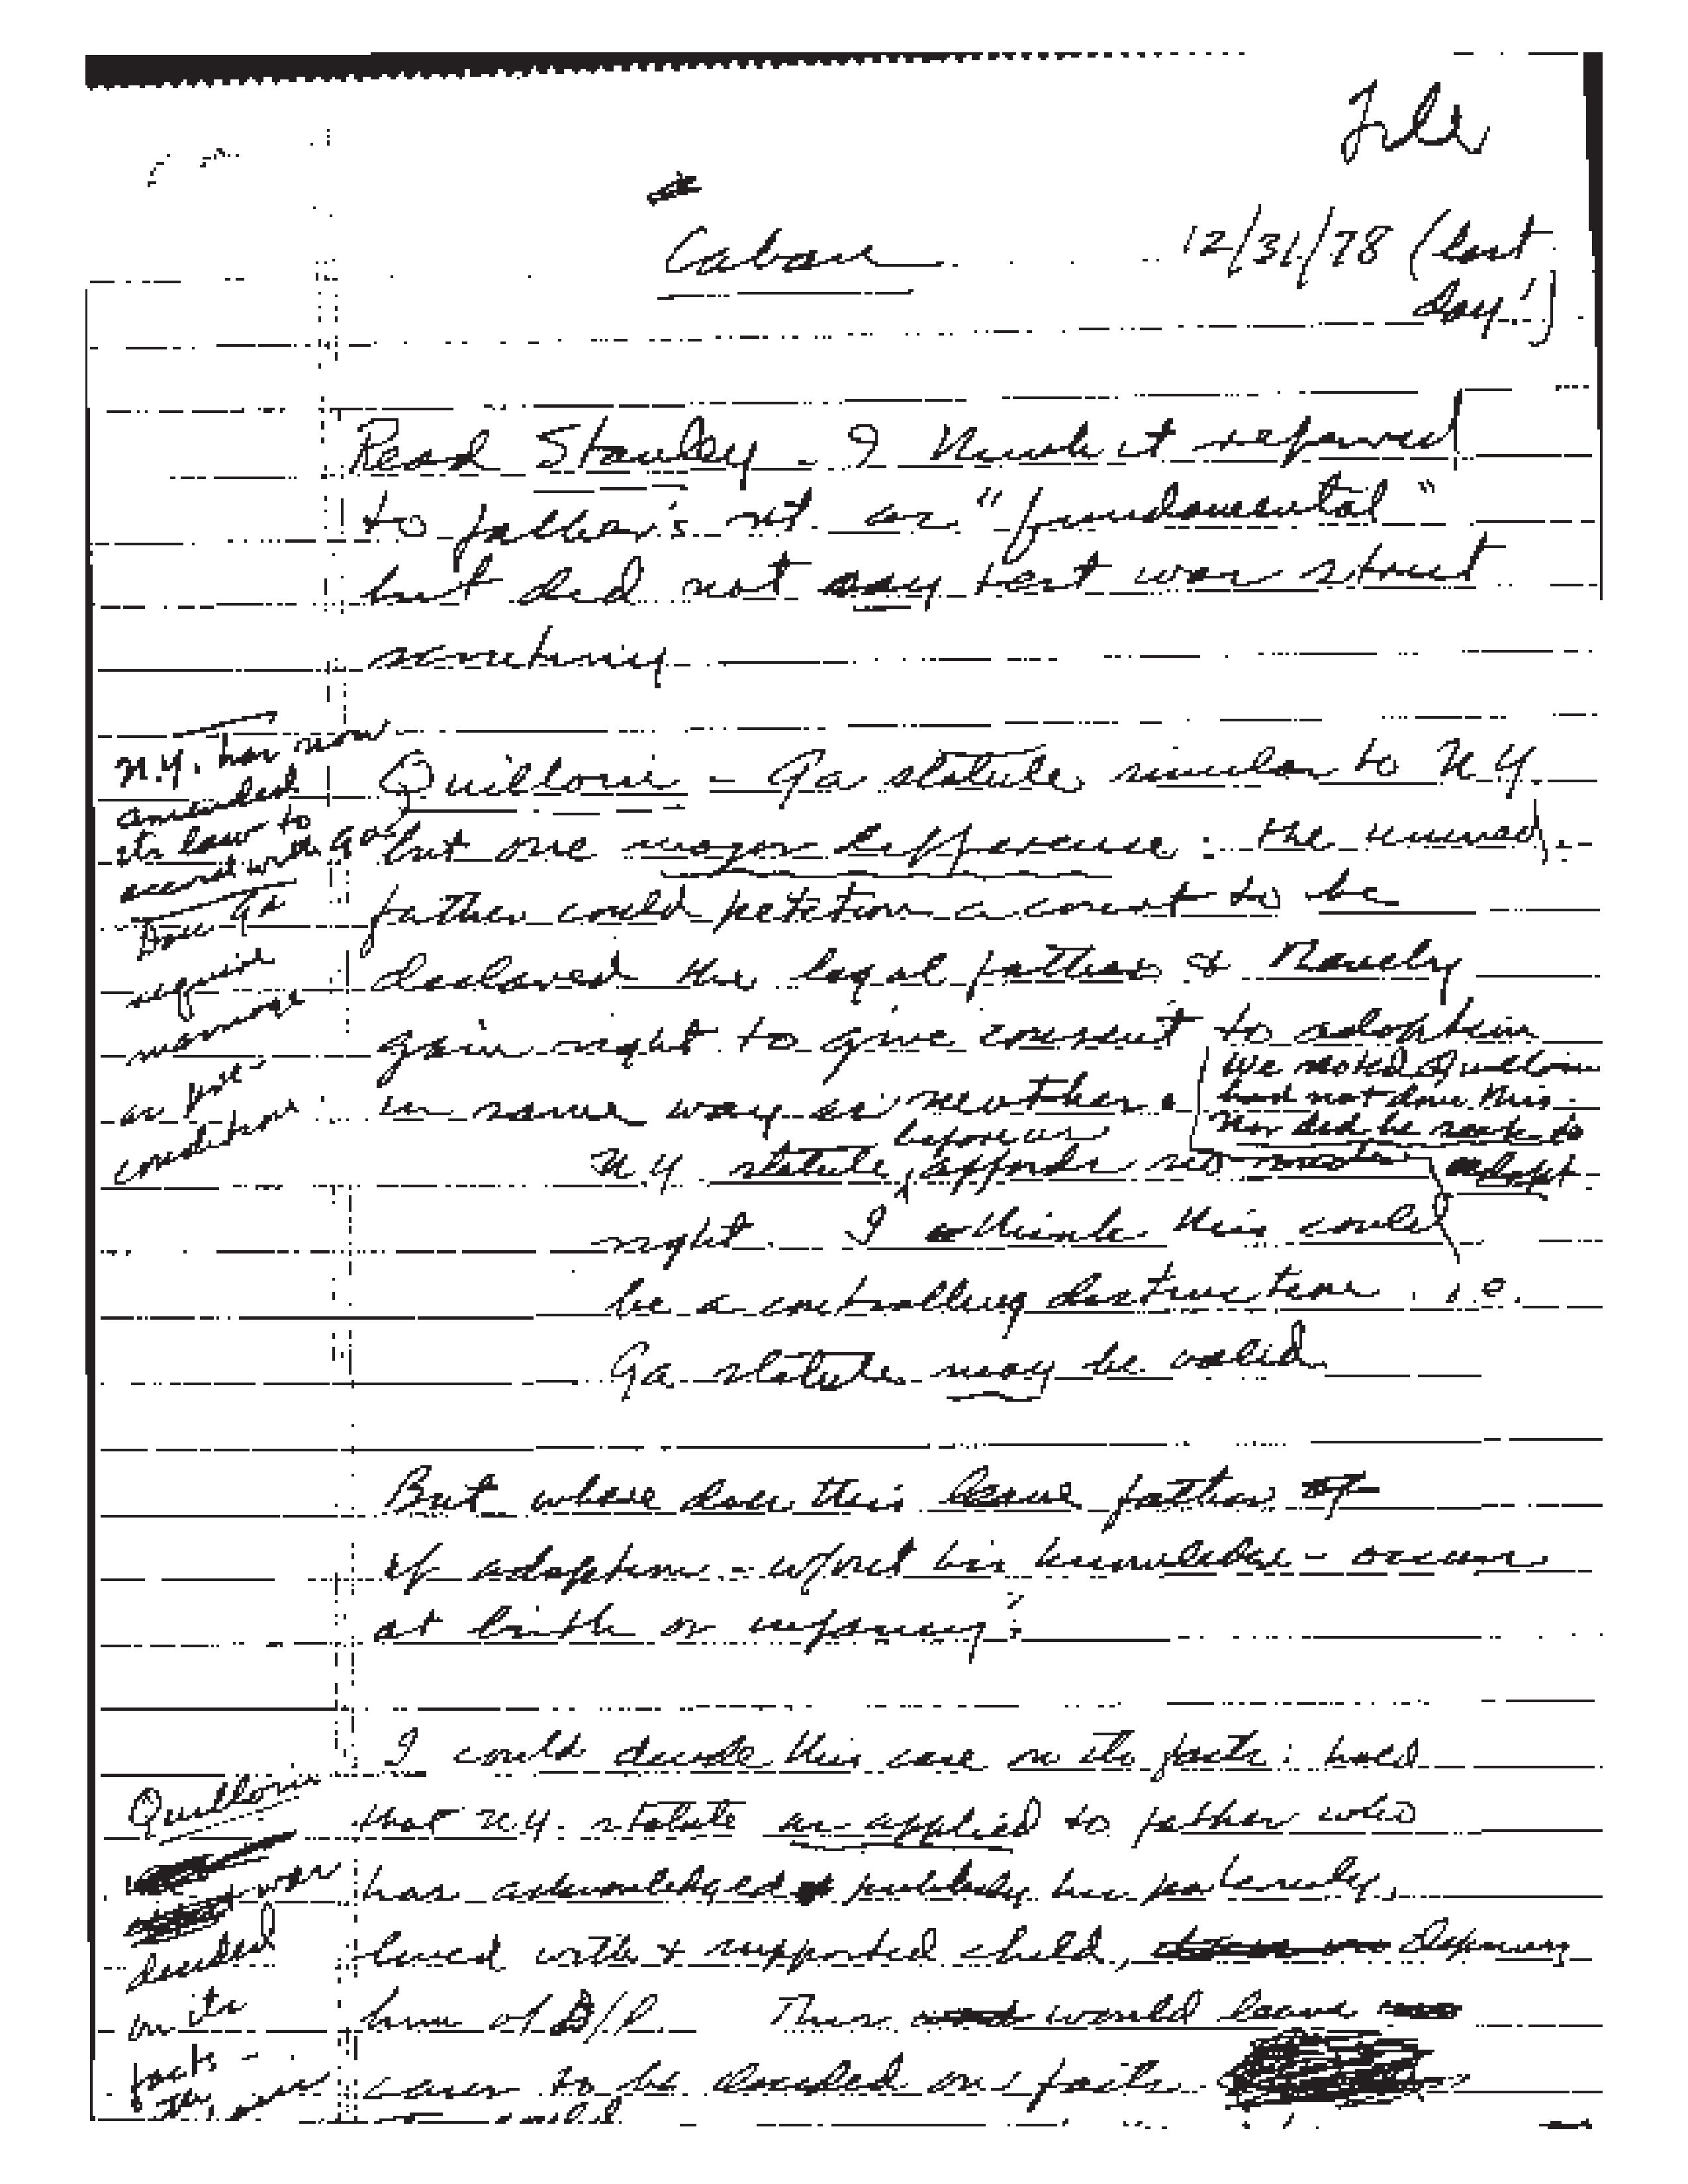 File
Caban
12/31/78 (last
day!)
Read Stanley - I think it referred
to father's rt. as "fundamental"
but did not say test was strict
scrutiny
N.Y. has now
amended
its law to
accord with Ga
Does Ga
require
marriage
as pre-
condition
Quilloin - Ga statute similar to N.Y.
but one major difference: the unwed
father could petition a court to be
declared the legal father & thereby
gain right to give consent to adoption
in same way as mother.
We noted Quilloin
had not done this.
Nor did he seek to
adopt
N.Y. statute, before us, affords no such
right. I think this could
be a controlling distinction. i.e.
Ga statute may be valid
But where does this leave father
if adoption - w/out his knowledge - occurs
at birth or infancy?
I could decide this case on its facts: hold
that N.Y. statute as applied to father who
has acknowledged publicly his paternity,
lived with & supported child, deprives
him of D/P. This would leave
cases to be decided on facts
Quilloin
was
decided
on its
facts -